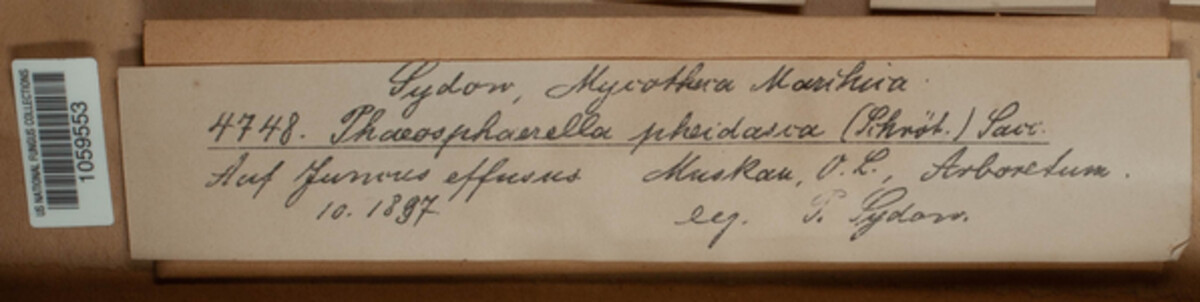 US NATIONAL FUNGUS COLLECTIONS
1059553
Sydow, Mycotheca Marchica.
4748. Phaeosphaerella pheidasca (Schröt.) Sacc.
Auf Juncus effusus Muskau, O. L., Arboretum.
10. 1897. leg. P. Sydow.